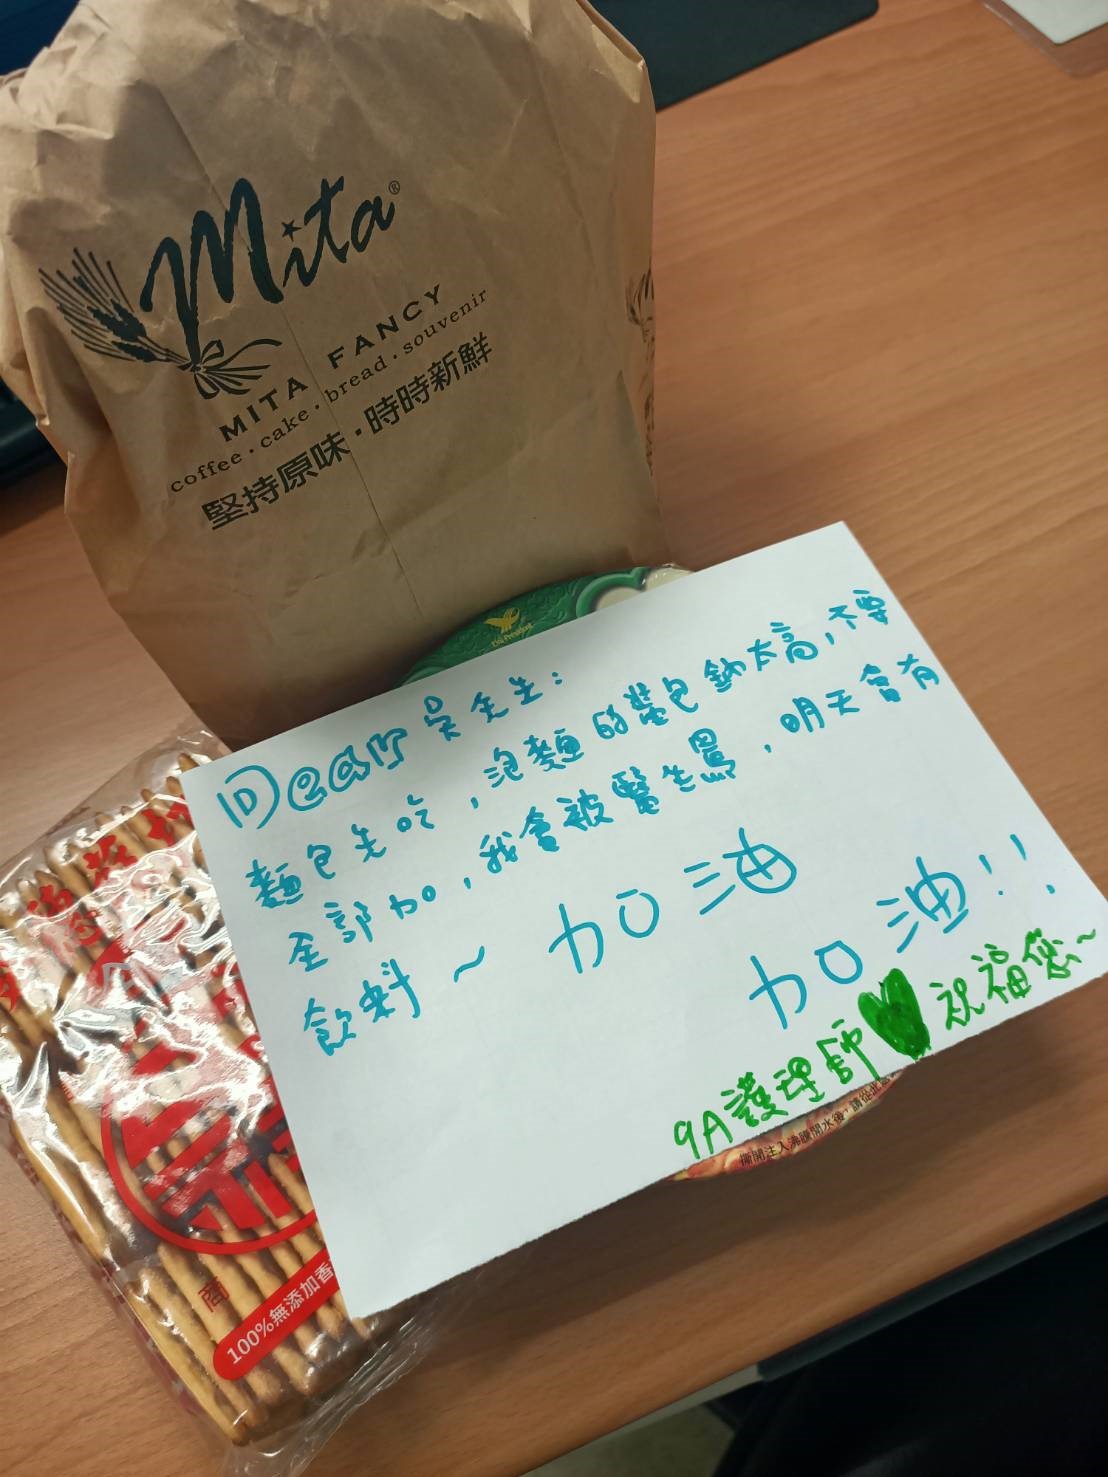 Mita®
MITA FANCY
coffee·cake·bread·souvenir
堅持原味·時時新鮮
Uni President
Dear 吳先生：
麵包先吃，泡麵的醬包鈉太高，不要
全部加，我會被醫生罵，明天會有
飲料～ 加油
加油！！
9A護理師 祝福您～
撕開注入沸騰開水後，請從此
商
100%無添加香